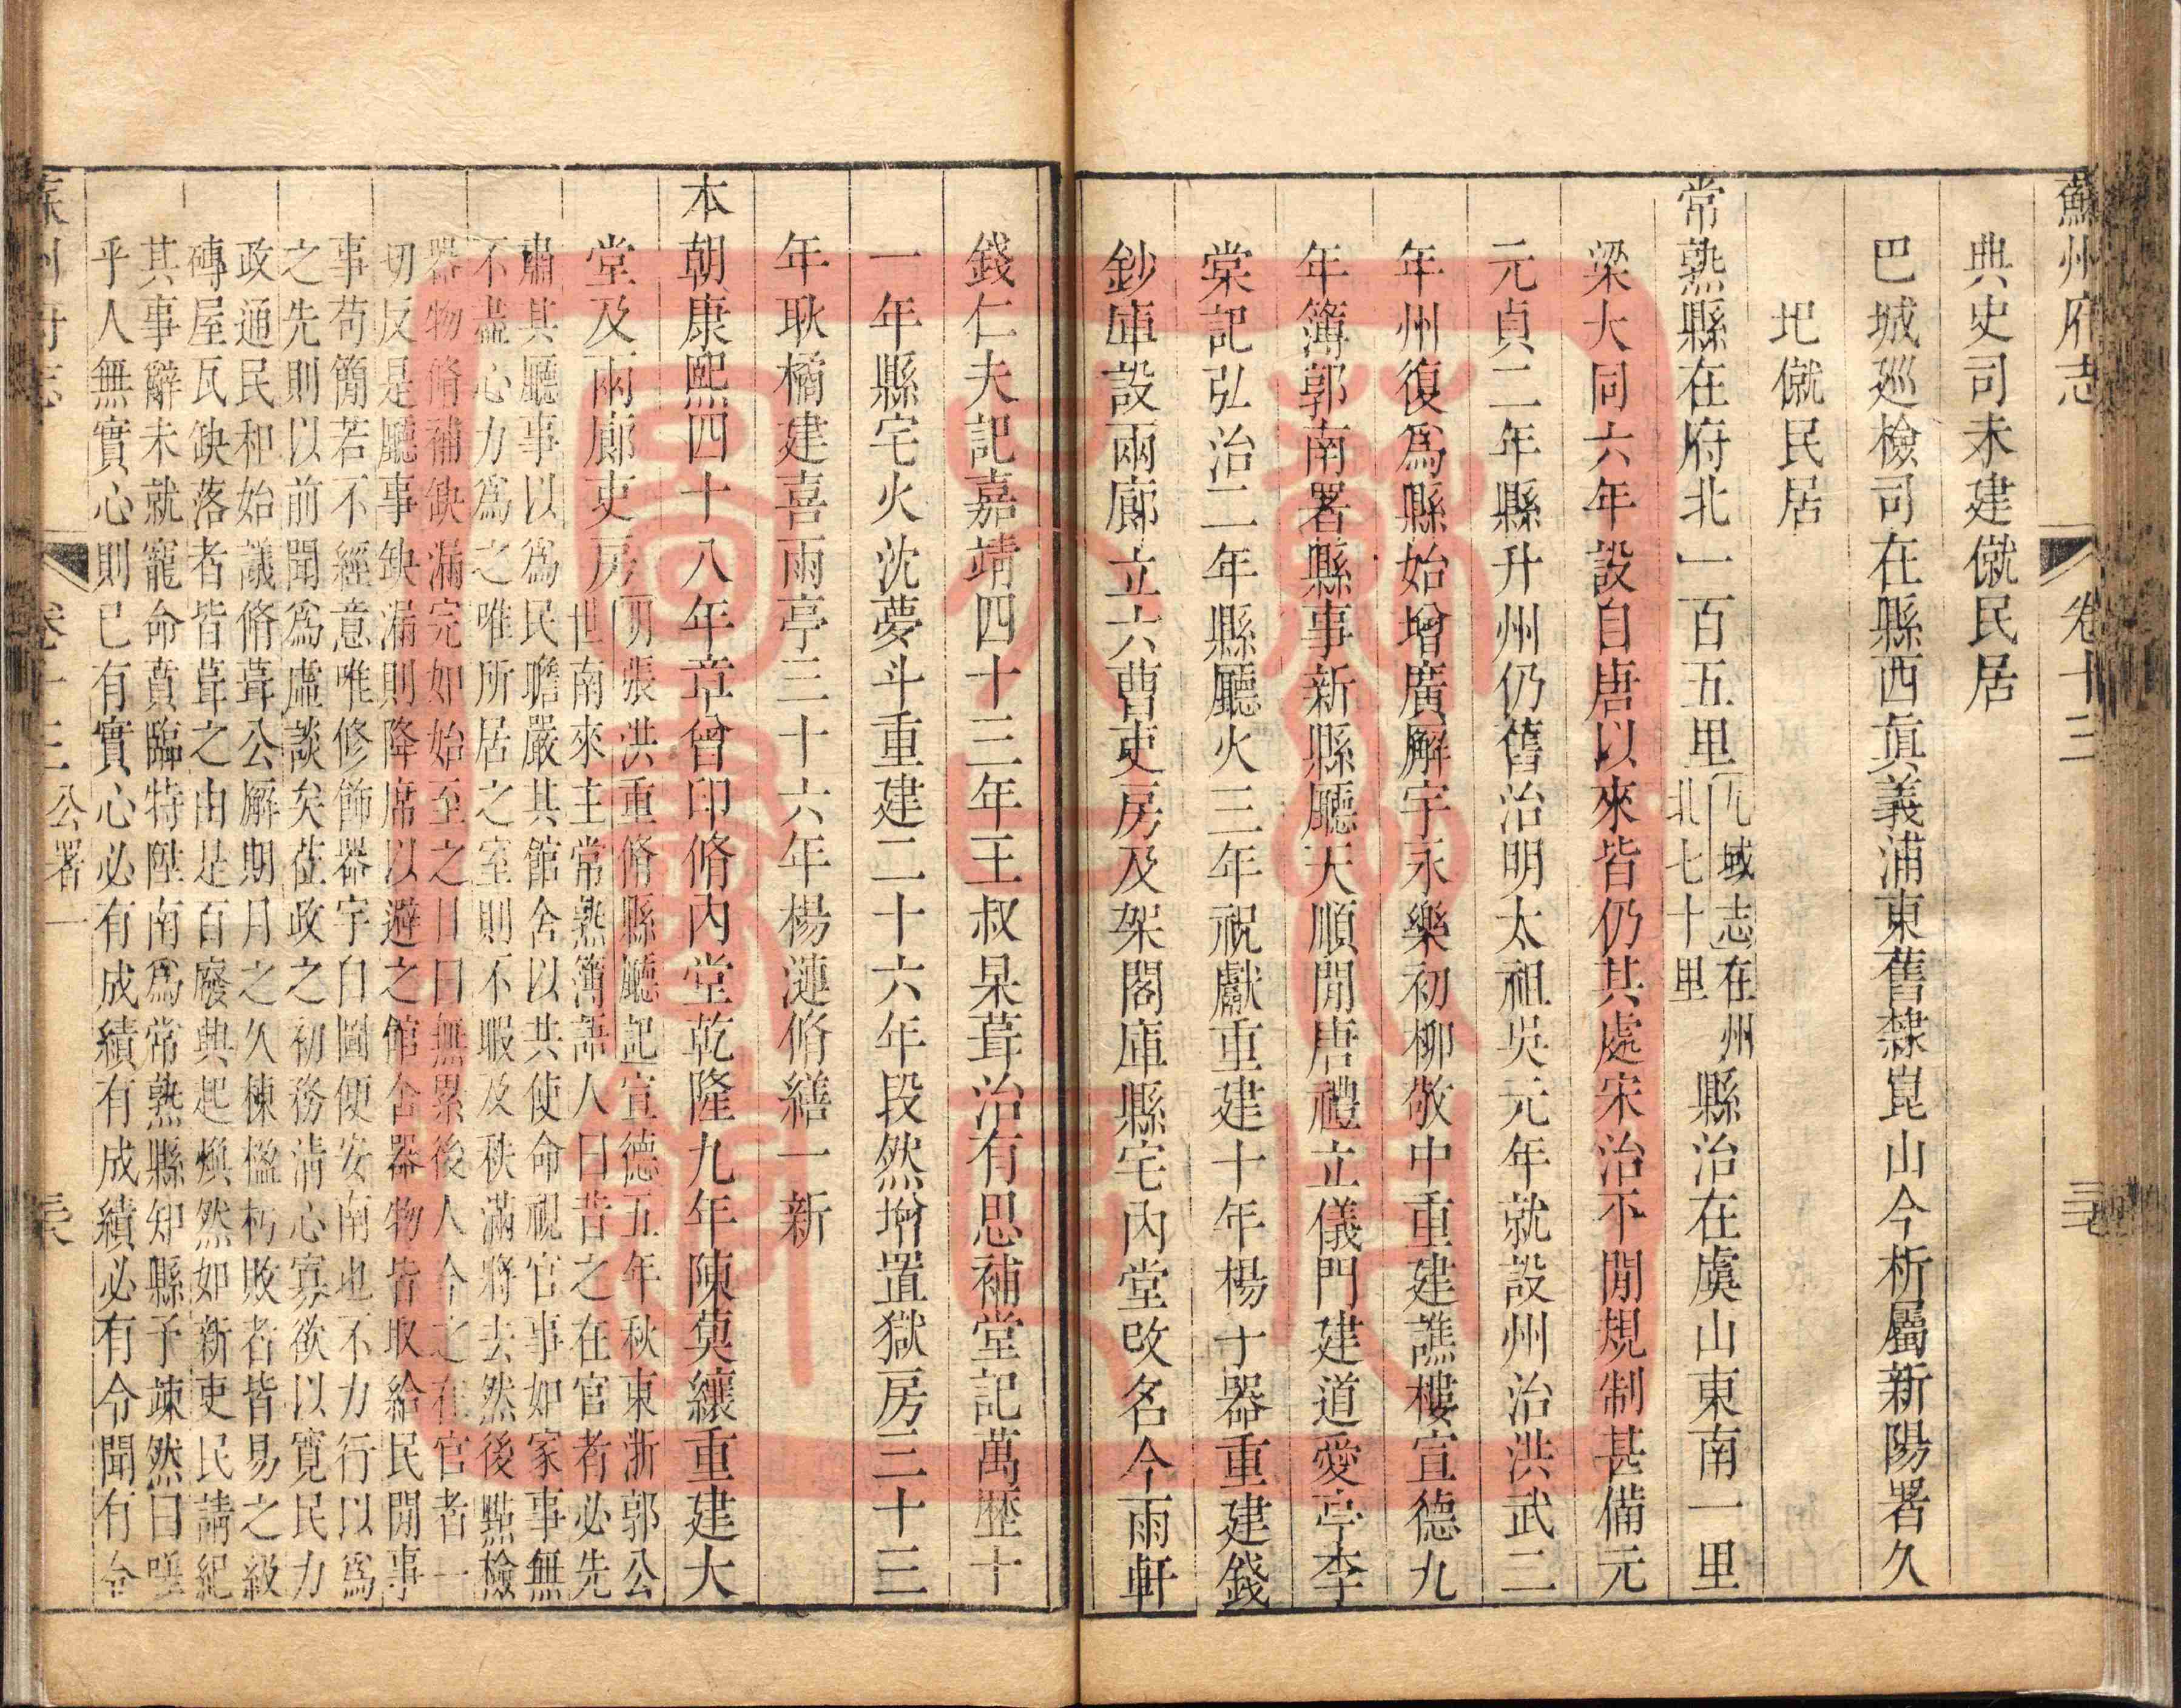 蘇州府志 卷十三
典史司未建僦民居
巴城廵檢司在縣西眞義浦東舊隸崑山今析屬新陽署久
圯僦民居
常熟縣在府北一百五里 九域志在州 北七十里 縣治在虞山東南一里
梁大同六年設自唐以來皆仍其處宋治不聞規制甚備元
元貞二年縣升州仍舊治明太祖吳元年就設州治洪武二
年州復爲縣始增廣廨宇永樂初柳敬中重建譙樓宣德九
年簿郭南署縣事新縣廳天順閒唐禮立儀門建道愛亭李
棠記弘治二年縣廳火三年祝獻重建十年楊子器重建錢
鈔庫設兩廊立六曹吏房及架閣庫縣宅內堂改名今雨軒
錢仁夫記嘉靖四十三年王叔杲葺治有思補堂記萬歷十
一年縣宅火沈夢斗重建二十六年段然增置獄房三十三
年耿橘建喜雨亭三十六年楊漣脩繕一新
本朝康熙四十八年章曾印脩內堂乾隆九年陳莫纕重建大
堂及兩廊吏房 明張洪重脩縣廳記宣德五年秋東浙郭公
世南來主常熟簿語人曰昔之在官者必先
肅其廳事以爲民瞻嚴其館舍以共使命視官事如家事無
不盡心力爲之唯所居之室則不暇及秩滿將去然後點檢
器物脩補缺漏完如始至之日曰無累後人今之在官者一
切反是廳事缺漏則降席以避之館舍器物皆取給民閒事
事苟簡若不經意唯修飾器宇曰圖便安南也不力行以爲
之先則以前聞爲虛談矣莅政之初務清心寡欲以寛民力
政通民和始議脩葺公廨期月之久棟楹朽敗者皆易之級
磚屋瓦缺落者皆葺之由是百廢典起煥然如新吏民請紀
其事辭未就寵命賁臨特陞南爲常熟縣知縣予竦然曰嗟
乎人無實心則已有實心必有成績有成績必有令聞有令
卷十三 公署一